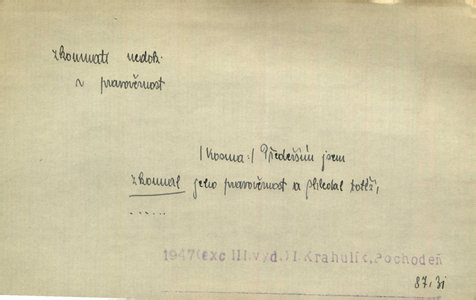 zkoumati nedok.
~ pravověrnost
/Kosma:/ Především jsem
zkoumal jeho pravověrnost a shledal totiž,
......
1947(exc III.vyd.) I.Krahulík,Pochodeň
87,31